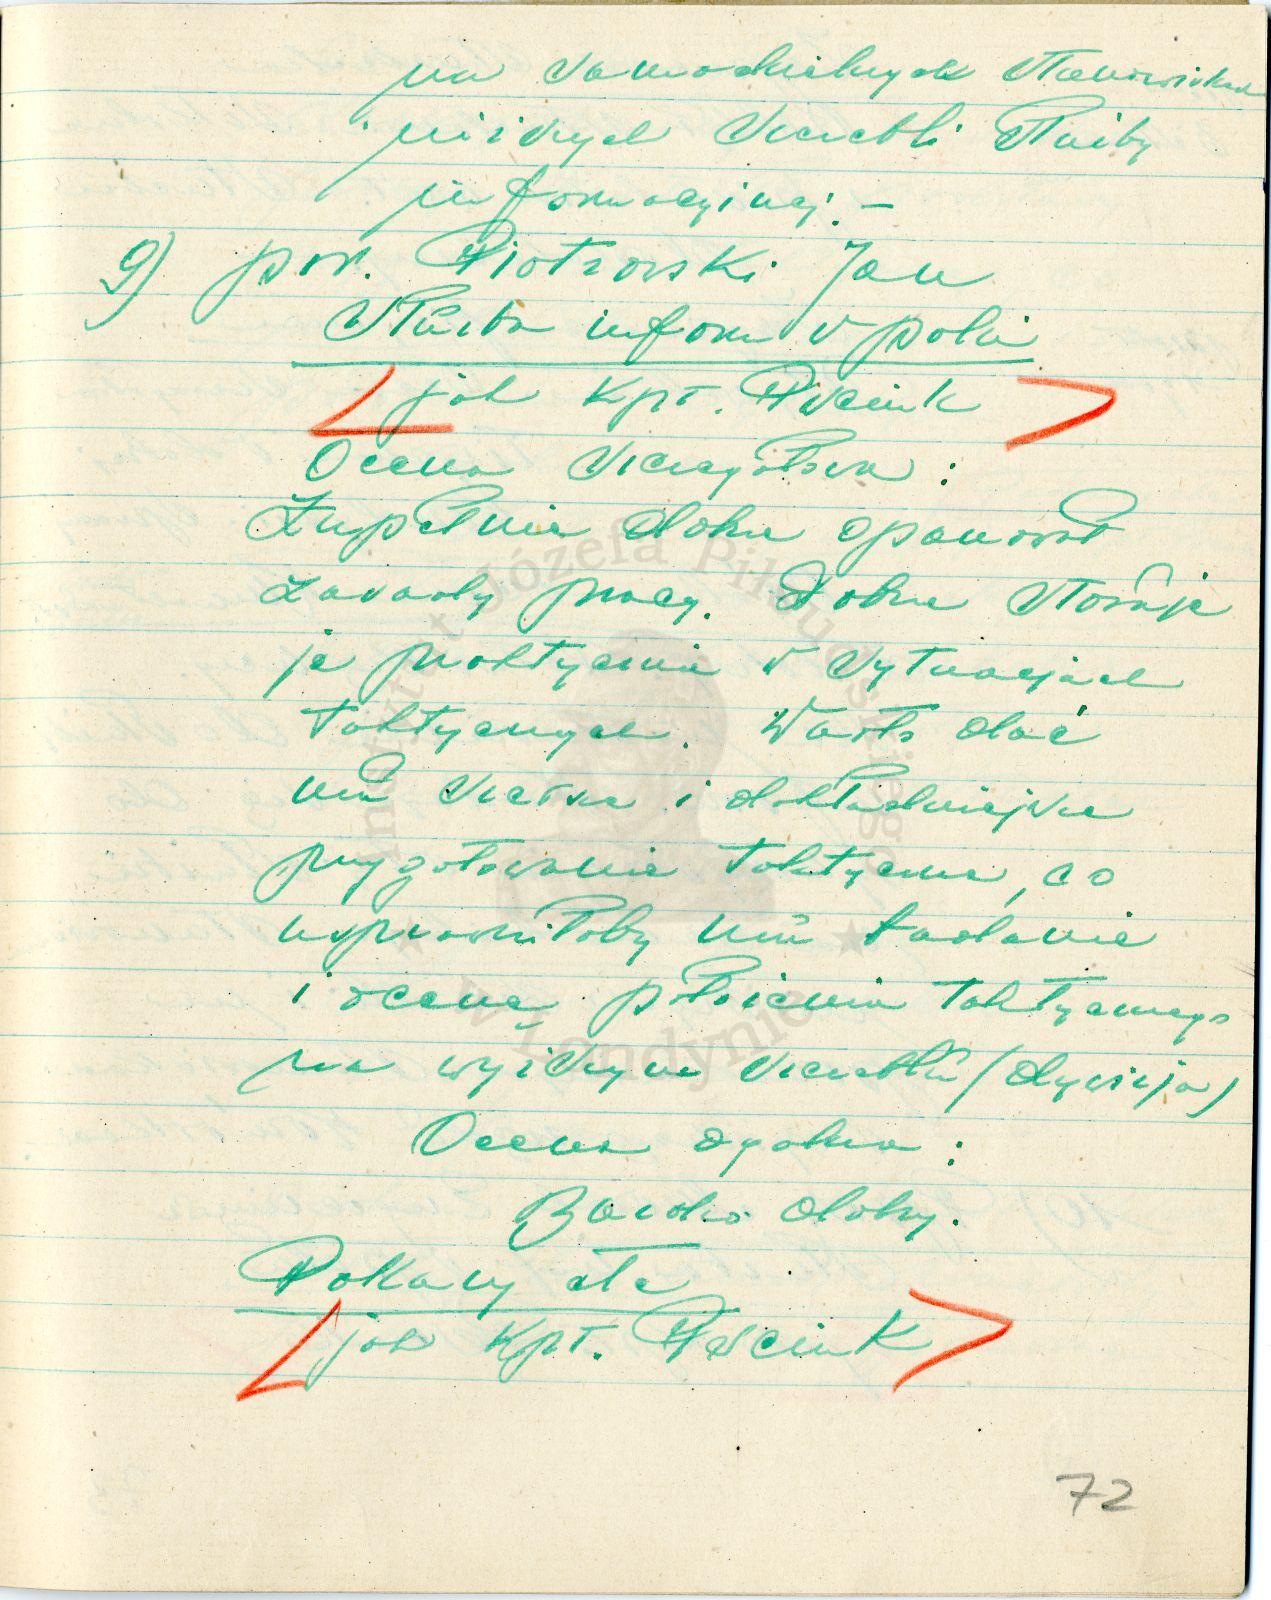 na samodzielnych stanowiskach
niższych szczebli służby
informacyjnej. —
9) por. Piotrowski Jan
Służba inform w polu
jak kpt.
Ocena szczegółowa :
Zupełnie dobrze opanował
zasady pracy. Dobrze stosuje
je praktycznie w sytuacjach
taktycznych. Warto dać
mu szersze i dokładniejsze
przygotowanie taktyczne, co
usprawniłoby mu zadanie
i ocenę położenia taktycznego
na wyższym szczeblu (dywizja)
Ocena ogólna :
Bardzo dobry.
jak kpt.
72
Instytut Józefa Piłsudskiego
w Londynie